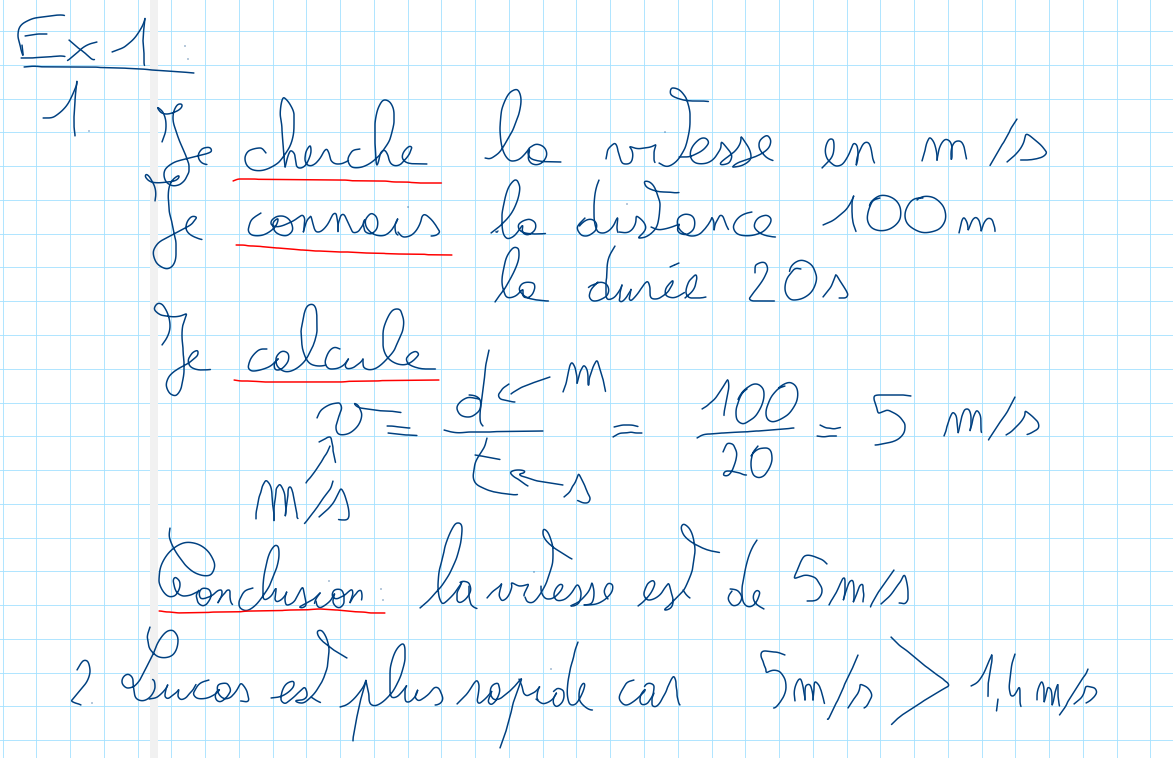 Ex 1
1. Je cherche la vitesse en m/s
Je connais la distance 100m
la durée 20s
Je calcule
v = d ← m / t ← s = 100 / 20 = 5 m/s
m/s
Conclusion : la vitesse est de 5m/s
2. Lucas est plus rapide car 5m/s > 1,4 m/s